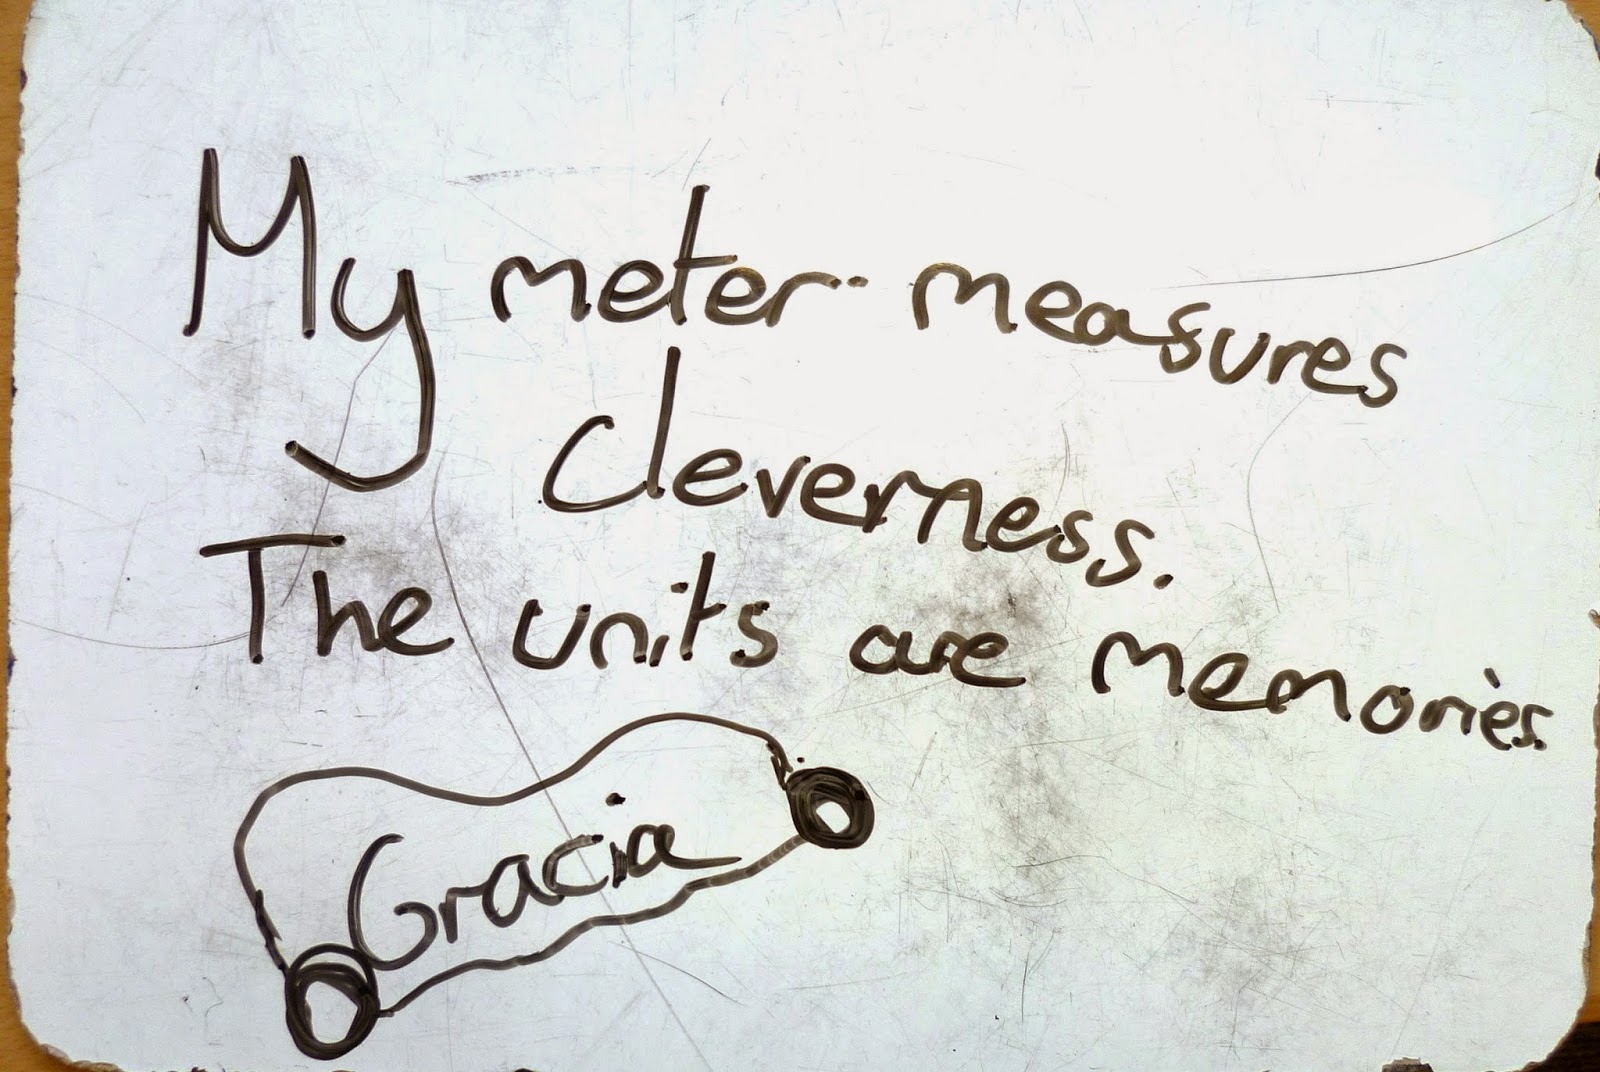 My meter measures
Cleverness.
The units are memories.
Gracia